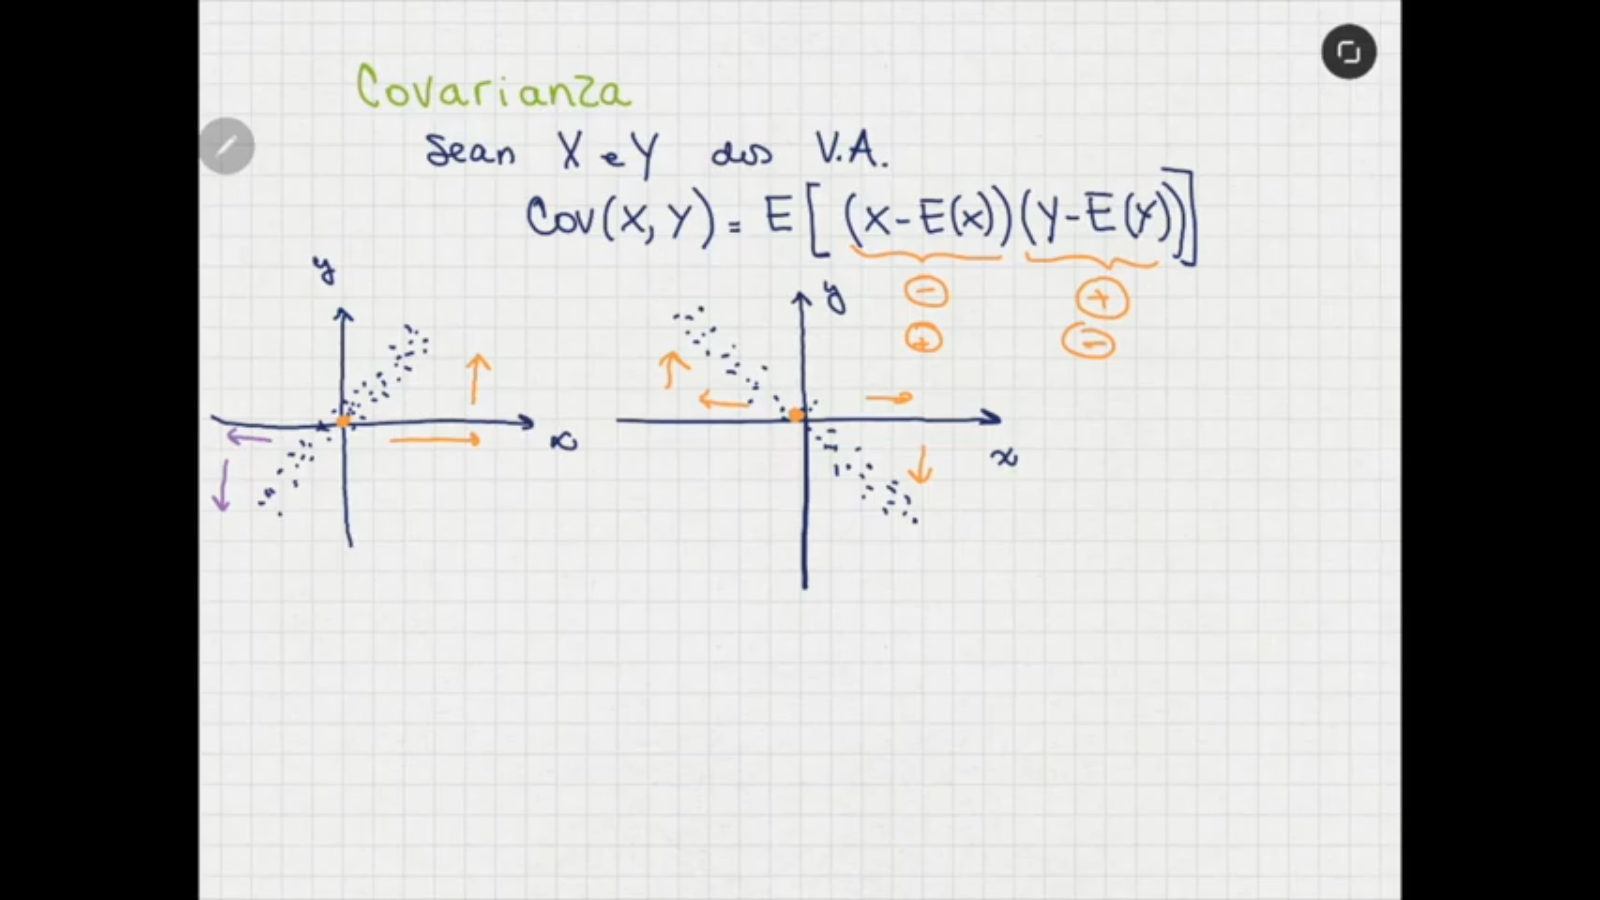 Covarianza
Sean X e Y dos V.A.
Cov(X, Y) = E[(X-E(x))(Y-E(Y))]
- +
+ -
y
x
y
x